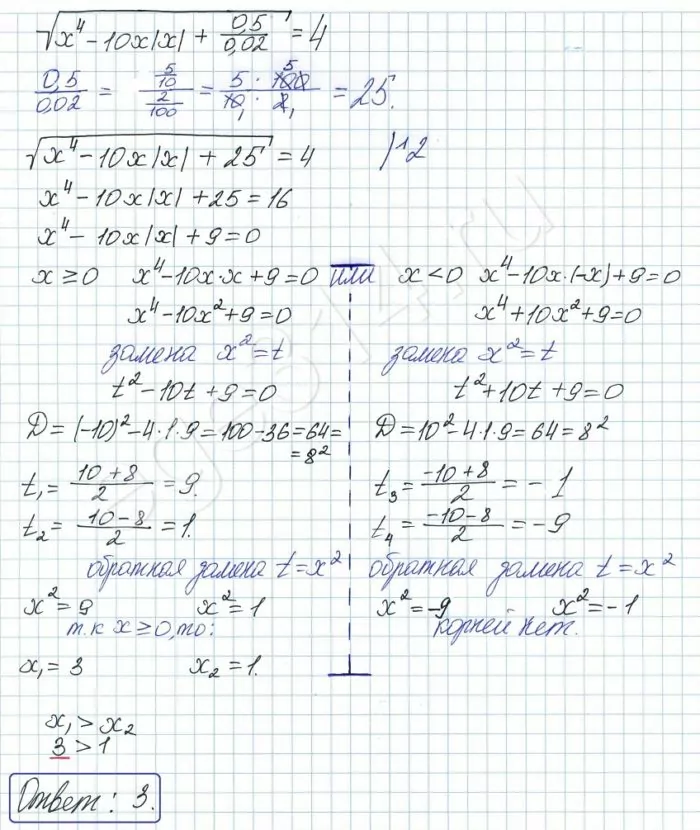 √(x⁴ − 10x|x| + 0,5/0,02) = 4
0,5/0,02 = (5/10)/(2/100) = (5 · 100)/(10 · 2) = 25.
√(x⁴ − 10x|x| + 25) = 4 |↑2
x⁴ − 10x|x| + 25 = 16
x⁴ − 10x|x| + 9 = 0
x ≥ 0 x⁴ − 10x·x + 9 = 0 или
x⁴ − 10x² + 9 = 0
замена x² = t
t² − 10t + 9 = 0
D = (−10)² − 4·1·9 = 100 − 36 = 64 =
= 8²
t₁ = (10 + 8)/2 = 9.
t₂ = (10 − 8)/2 = 1.
обратная замена t = x²
x² = 9 x² = 1
т.к x ≥ 0, то:
x₁ = 3 x₂ = 1.
x < 0 x⁴ − 10x·(−x) + 9 = 0
x⁴ + 10x² + 9 = 0
замена x² = t
t² + 10t + 9 = 0
D = 10² − 4·1·9 = 64 = 8²
t₃ = (−10 + 8)/2 = −1
t₄ = (−10 − 8)/2 = −9
обратная замена t = x²
x² = −9 x² = −1
корней нет.
x₁ > x₂
3 > 1
Ответ: 3.